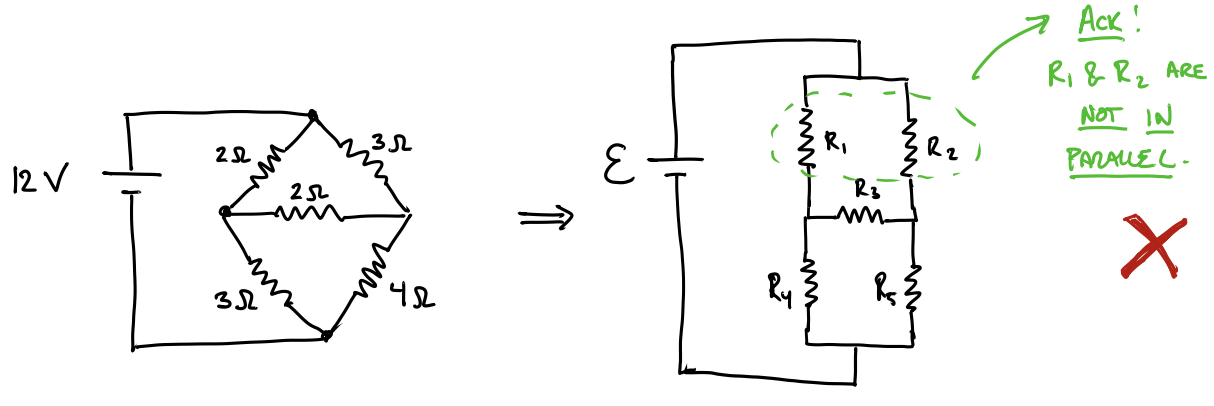 12 V
2Ω
3Ω
2Ω
3Ω
4Ω
⇒
ℰ
R₁
R₂
R₃
R₄
R₅
ACK!
R₁ & R₂ ARE
NOT IN
PARALLEL.